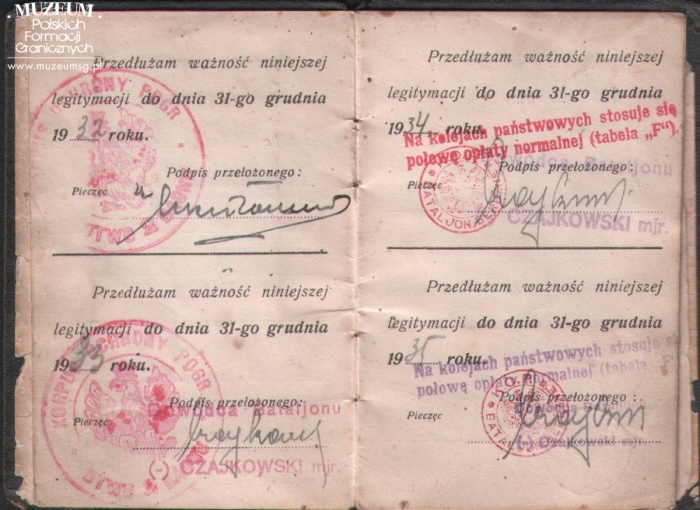 MUZEUM
Polskich
Formacji
Granicznych
www.muzeumsg.pl
Przedłużam ważność niniejszej
legitymacji do dnia 31-go grudnia
1932 roku.
Podpis przełożonego:
Pieczęć
Przedłużam ważność niniejszej
legitymacji do dnia 31-go grudnia
1933 roku.
KORPUS OCHRONY POGR
Podpis przełożonego:
Dowódca Bataljonu
Pieczęć
(-) CZAJKOWSKI mjr.
Przedłużam ważność niniejszej
legitymacji do dnia 31-go grudnia
1934 roku.
Na kolejach państwowych stosuje się
połowę opłaty normalnej (tabela „F").
Dowódca Bataljonu
Podpis przełożonego:
Pieczęć
CZAJKOWSKI mjr.
Przedłużam ważność niniejszej
legitymacji do dnia 31-go grudnia
1935 roku.
Na kolejach państwowych stosuje si
połowę opłaty normalnej (tabela „F
Podpis przełożonego:
Pieczęć
(-) Czajkowski mjr.